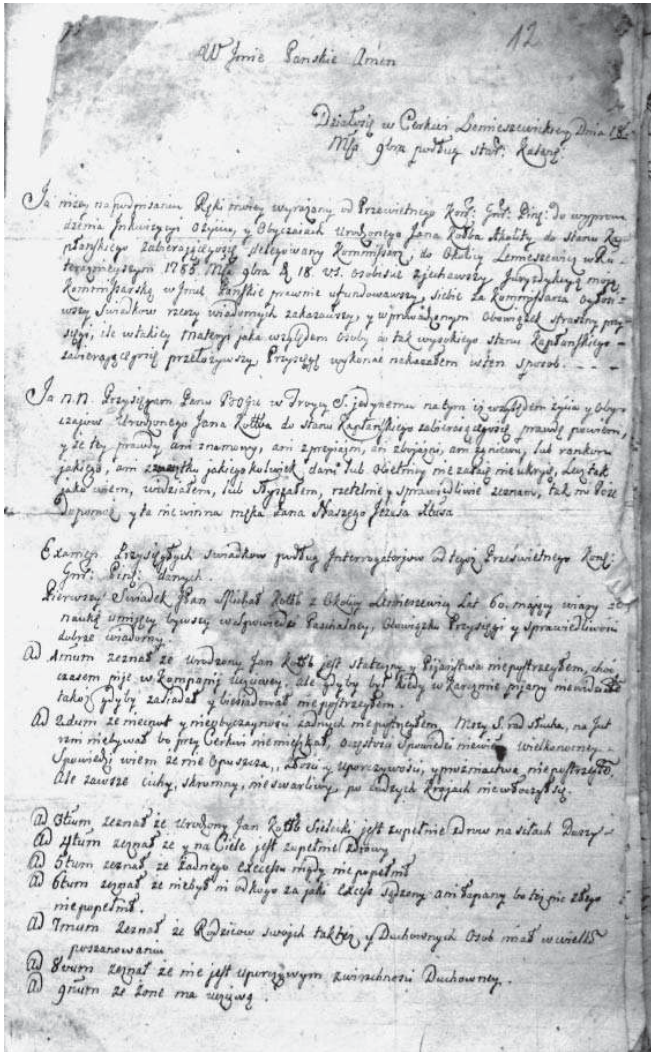 12
W Jmie Panskie Amen
Działosię w Cerkwi Lemieszewickiey Dnia 18
Msca 9bra podług star: Kalend:
Ja niżey na podpisaniu Ręki moiey wyrażony od Przewietnego Kons: Gnł: Piń: do wyprowa
dzenia Jnkwizycyi Ożyciu, y Obyczaiach Urodzonego Jana Kołba Akolity do stanu Ka
płańskiego zabieraiącegosię delegowany Kommissarz, do Okolicy Lemieszewicz w Ru
teraznieyszym 1788 Msca 9bra D. 18 v.s. osobiscie zjechawszy, Jurysdykcyą moją
Kommissarską w Jmie Panskie prawnie ufundowawszy, siebie za Kommissarza Ogłosi
wszy Swiadkow rzeczy wiadomych zakazawszy, y wprowadzonym Obowiązek straszny przy
sięgi, ile wtakiey materyi jako względem osoby do tak wysokiego stanu Kapłańskiego
zabieraiącegosię przełożywszy, Przysięgę wykonać nakazałem wten sposob.
Ja n.n. Przysięgam Panu Bogu w Troycy S. jedynemu natym iż względem życia y Oby
czaiow Urodzonego Jana Kołba do stanu Kapłańskiego zabieraiącegosię prawdę powiem,
y że tey prawdy ani znamowy, ani zprzyiaźni, ani zboiaźni, ani zgniewu, lub rankoru
jakiego, ani zzawziątku jakiegokolwiek dani lub Obietnicy nie zataię nie ukryię, Lecz tak
jako wiem, widziałem, lub słyszałem, rzetelnie y sprawiedliwie zeznam, tak mi Boże
dopomoż y ta niewinna męka Pana Naszego Jezusa Xtusa
Examen Przysięgłych swiadkow podług Interrogatoriow od tegoż Przeswietnego Kons:
Gnł: Piń: danych.
Pierwszy Swiadek Jpan Michał Kołb z Okolicy Lemieszewicz Lat 60. maiący wiary ze
nauką umięcy bywszy wSpowiedzi Paschalney, Obowiązku Przysięgi y Sprawiedliwosci
dobrze wiadomy.
Ad 1mum zeznał że Urodzony Jan Kołb jest stateczny y Pijaństwa niepostrzegłem, choć
czasem pije w Kompanij Uczciwey. ale gdyby był kiedy w Karczmie pijany niewidziałem
takoż gdyby zasiadał y biesiadował nie postrzegłem.
Ad 2dum że niecnot y nieobyczaynosci żadnych niepostrzegłem, Mszy S. rad słucha, na Jut
rzni niebywał bo przy Cerkwi niemieszkał, oczęstosci Spowiedzi niewiem wielkonocney
Spowiedzi wiem że nie Opuszcza, złosci y uporczywosci, y prożniactwa niepostrzegłem.
Ale zawsze cichy, skromny, nieswarliwy, po cudzych Krajach niewłoczyłsię.
Ad 3tium zeznał że Urodzony Jan Kołb Sielecki jest zupełnie zdrow na siłach Duszy
Ad 4tum zeznał że y na Ciele jest zupełnie zdrowy
Ad 5tum zeznał że żadnego excessu nigdy nie popełnił
Ad 6tum zeznał że niebył ni odkogo za jaki excess sądzony ani łapany bo też nic złego
nie popełnił.
Ad 7mum zeznał że Rodzicow swoich także y Duchownych Osob miał w wielkim
poszanowaniu
Ad 8vum zeznał że nie jest uporczywym zwierzchnosci Duchowney.
Ad 9num że żonę ma uczciwą.